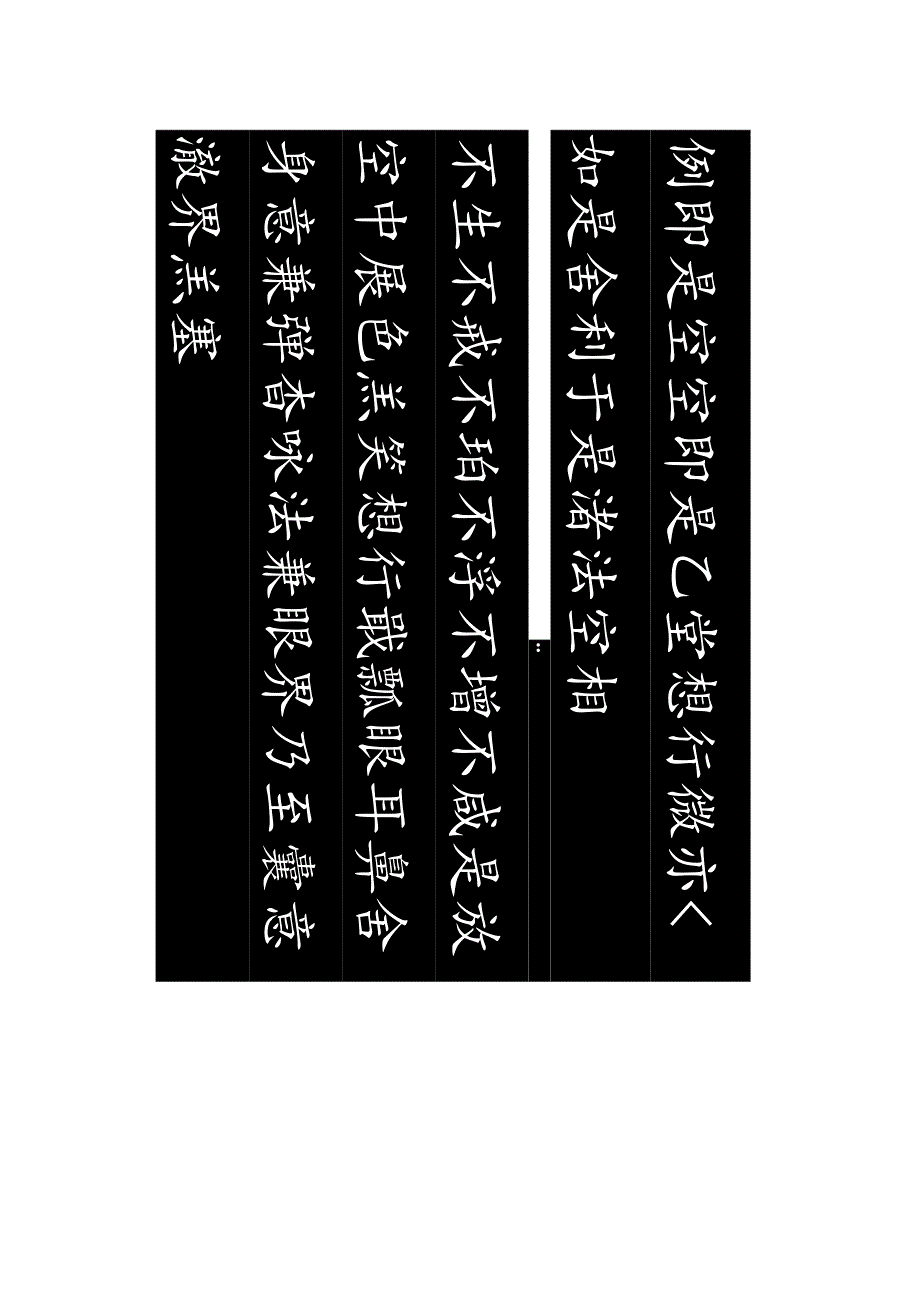 例即是空空即是乙堂想行微亦く
如是舍利于是渚法空相
:
不生不戒不珀不浮不增不咸是放
空中展色羔笑想行戢瓢眼耳鼻舍
身意兼彈香咏法兼眼界乃至囊意
澈界羔塞